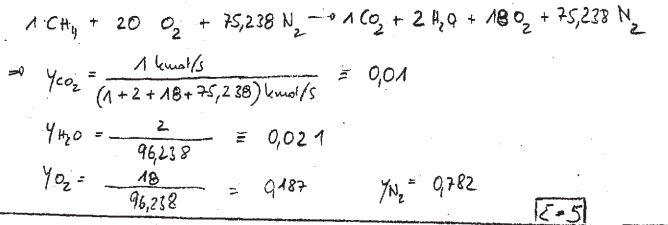 1 CH4 + 20 O2 + 75,238 N2 → 1 CO2 + 2 H2O + 18 O2 + 75,238 N2
⇒ yCO2 = 1 kmol/s / (1+2+18+75,238) kmol/s ≡ 0,01
yH2O = 2 / 96,238 ≡ 0,021
yO2 = 18 / 96,238 = 0,187 yN2 = 0,782
Σ=5